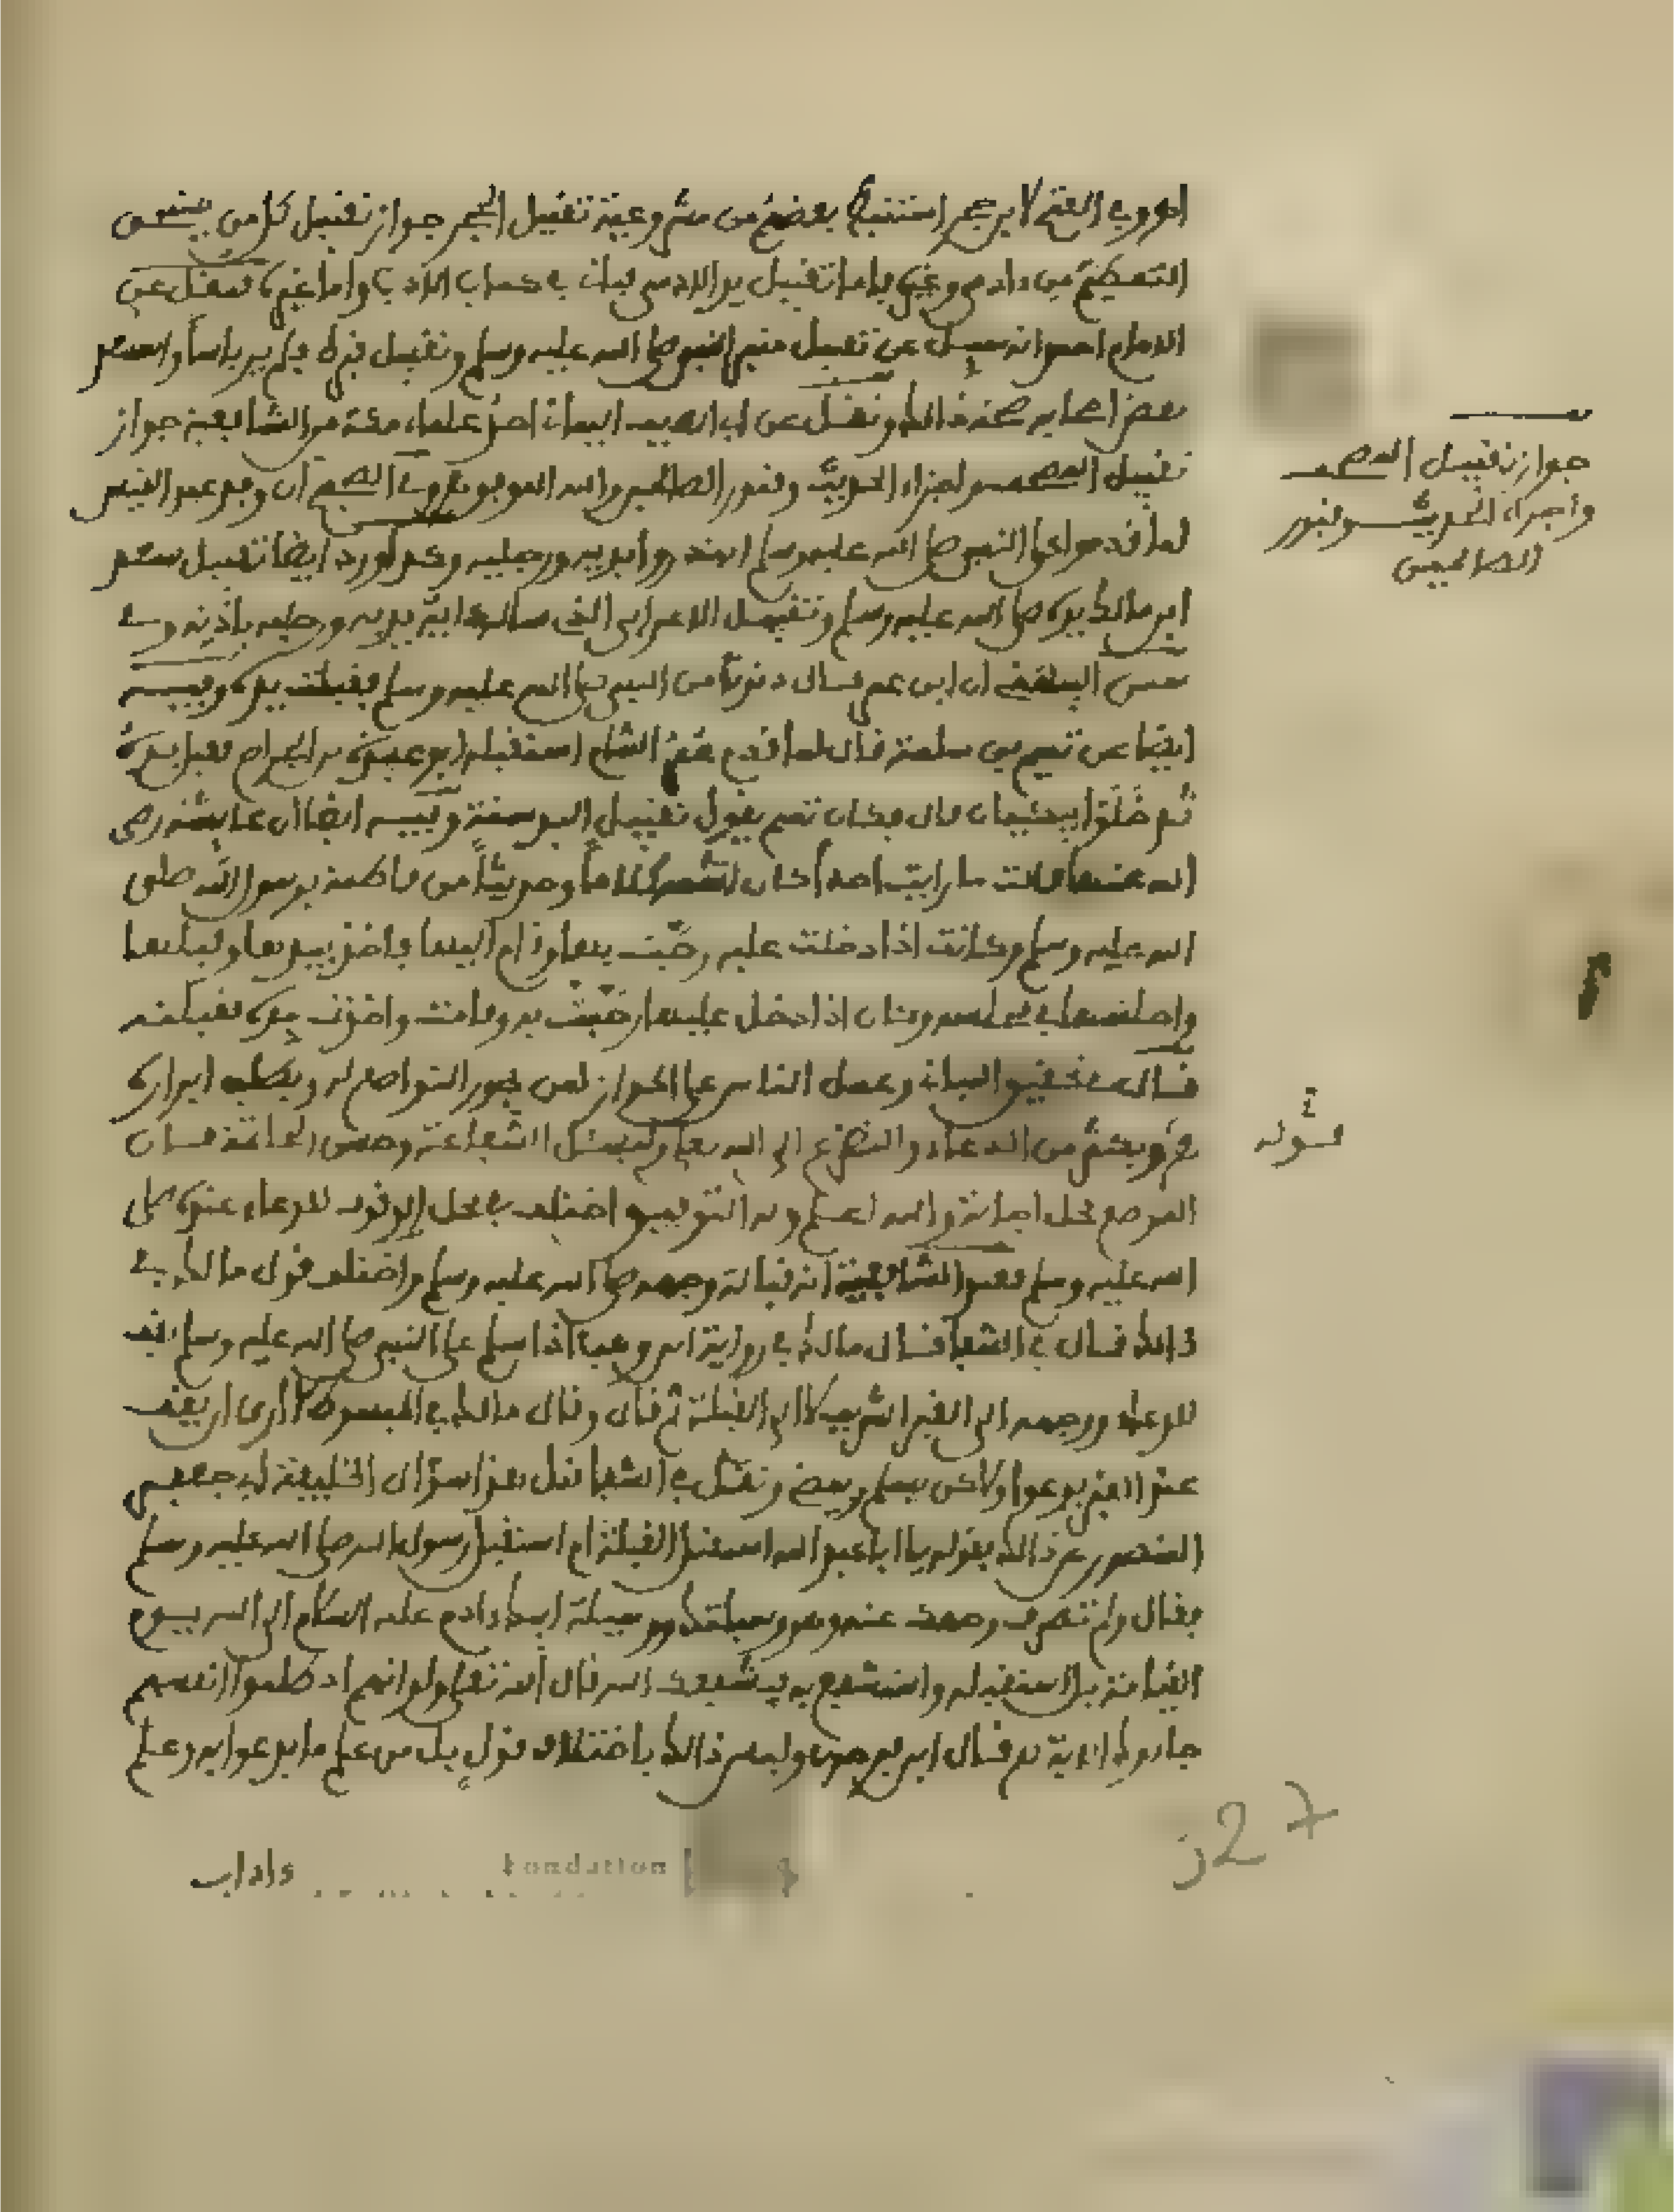 وفي الفتح لابن حجر استنبط بعضهم من مشروعية تقبيل الحجر جواز تقبيل كل من يستحق
التعظيم من ءادمي وغيره فأما تقبيل يد الادمي فيأتي في كتاب الادب وأما غيره فنقل عن
الامام احمد انه سئل عن تقبيل منبر النبي صلى الله عليه وسلم وتقبيل قبره فلم ير به باسا واستبعد
بعض اصحابه صحة ذالك ونقل عن ابن ابي الصيف اليماني احد علماء مكة من الشافعية جواز
تقبيل المصحف واجزاء الحديث وقبور الصالحين والله الموفق وفي الصحيح أن وفد عبد القيس
لما قدموا على النبي صلى الله عليه وسلم ابتدروا يديه ورجليه وكذا ورد ايضا تقبيل سعد
ابن مالك يده صلى الله عليه وسلم وتقبيل الاعرابي الذي ساله اية يديه ورجليه باذنه وفي
سنن البيهقي أن ابن عمر قال دنونا من النبي صلى الله عليه وسلم فقبلت يده وفيه
ايضا عن تميم بن سلمة قال لما قدم عمر الشام استقبله ابو عبيدة بن الجراح فقبل يده
ثم خلوا يبكيان قال فكان تميم يقول تقبيل اليد سنة وفيه ايضا ان عائشة رضي
الله عنها قالت ما رايت احدا كان اشبه كلاما وحديثا من فاطمة برسول الله صلى
الله عليه وسلم وكانت اذا دخلت عليه رحبت بها وقام اليها فاخذ بيدها وقبلها
واجلسها في مجلسه وكان اذا دخل عليها رحبت به وقامت واخذت بيده فقبلته
قال في تحقيق المباني وعمل الناس على الجواز لمن يجوز التواضع له ويطلب ابراره
ويكثر من الدعاء والتضرع الى الله تعالى ويسئل الشفاعة وحسن الخاتمة فان
الموضع محل اجابة والله اعلم وبه التوفيق اختلف في محل الوقوف للدعاء عنده صلى
الله عليه وسلم فعند الشافعية انه قبالة وجهه صلى الله عليه وسلم واختلف قول مالك في
ذالك قال في الشفا قال مالك في رواية ابن وهب اذا سلم على النبي صلى الله عليه وسلم يقف
للدعاء ووجهه الى القبر الشريف لا الى القبلة ثم قال وقال مالك في المبسوط لا أرى أن يقف
عند القبر يدعوا ولاكن يسلم ويمضي ونقل في الشفا قبل هذا سؤال الخليفة ابي جعفر
المنصور عن ذالك بقوله يا ابا عبد الله استقبل القبلة ام استقبل رسول الله صلى الله عليه وسلم
فقال ولم تصرف وجهك عنه وهو وسيلتك ووسيلة ابيك ءادم عليه السلام الى الله يوم
القيامة بل استقبله واستشفع به يشفعك الله قال الله تعالى ولو انهم اذ ظلموا انفسهم
جاءوك الاية ثم قال ابن فرحون وليس ذالك باختلاف قول بل من علم ما يدعوا به وعلم
وءاداب
جواز تقبيل المصحف
واجزاء الحديث وقبور
الصالحين
قوله
27
Fondation